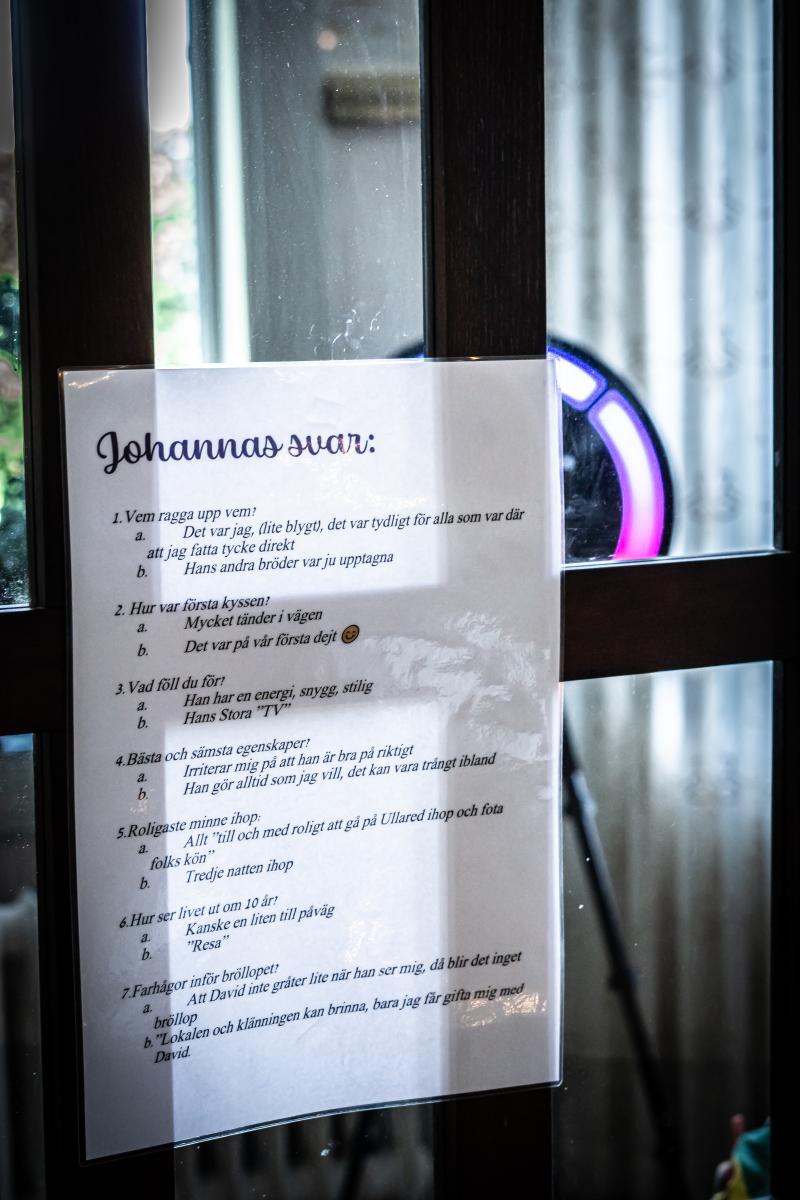 Johannas svar:
1. Vem ragga upp vem?
a. Det var jag, (lite blygt), det var tydligt för alla som var där
att jag fatta tycke direkt
b. Hans andra bröder var ju upptagna
2. Hur var första kyssen?
a. Mycket tänder i vägen
b. Det var på vår första dejt 😊
3. Vad föll du för?
a. Han har en energi, snygg, stilig
b. Hans Stora "TV"
4. Bästa och sämsta egenskaper?
a. Irriterar mig på att han är bra på riktigt
b. Han gör alltid som jag vill, det kan vara trångt ibland
5. Roligaste minne ihop:
a. Allt "till och med roligt att gå på Ullared ihop och fota
folks kön"
b. Tredje natten ihop
6. Hur ser livet ut om 10 år?
a. Kanske en liten till påväg
b. "Resa"
7. Farhågor inför bröllopet?
a. Att David inte gråter lite när han ser mig, då blir det inget
bröllop
b. "Lokalen och klänningen kan brinna, bara jag får gifta mig med
David.